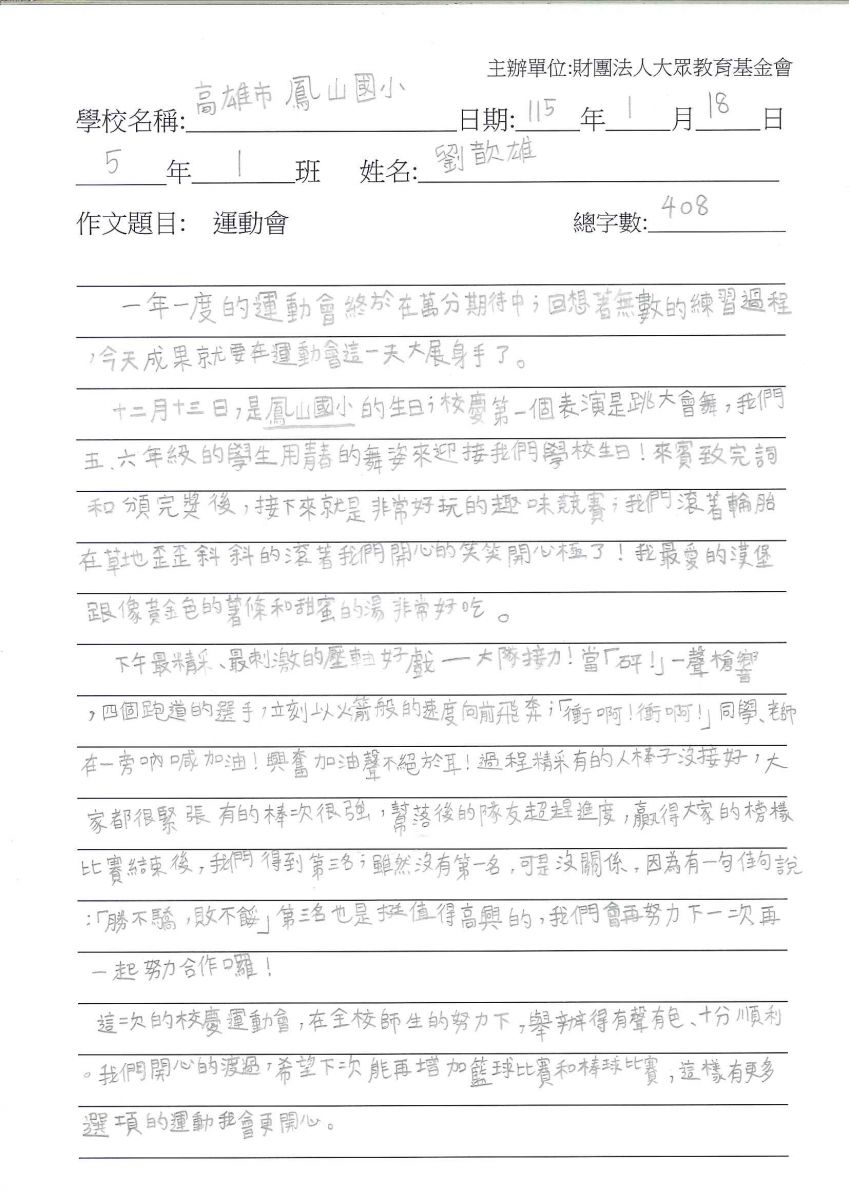 主辦單位:財團法人大眾教育基金會
學校名稱:高雄市 鳳山國小 日期:115年1月18日
5年1班 姓名:劉歆雄
作文題目: 運動會 總字數:408
一年一度的運動會終於在萬分期待中；回想著無數的練習過程
，今天成果就要在運動會這一天大展身手了。
十二月十三日，是鳳山國小的生日；校慶第一個表演是跳大會舞，我們
五、六年級的學生用青春的舞姿來迎接我們學校生日！來賓致完詞
和頒完獎後，接下來就是非常好玩的趣味競賽；我們滾著輪胎
在草地歪歪斜斜的滾著我們開心的笑笑開心極了！我最愛的漢堡
跟像黃金色的薯條和甜蜜的湯非常好吃。
下午最精采、最刺激的壓軸好戲—大隊接力！當「砰！」一聲槍響
，四個跑道的選手，立刻以火箭般的速度向前飛奔；「衝啊！衝啊！」同學、老師
在一旁吶喊加油！興奮加油聲不絕於耳！過程精采有的人棒子沒接好，大
家都很緊張有的棒次很強，幫落後的隊友超趕進度，贏得大家的榜樣
比賽結束後，我們得到第三名；雖然沒有第一名，可是沒關係，因為有一句佳句說
：「勝不驕，敗不餒」第三名也是挺值得高興的，我們會再努力下一次再
一起努力合作囉！
這次的校慶運動會，在全校師生的努力下，舉辦得有聲有色、十分順利
。我們開心的渡過，希望下次能再增加籃球比賽和棒球比賽，這樣有更多
選項的運動我會更開心。